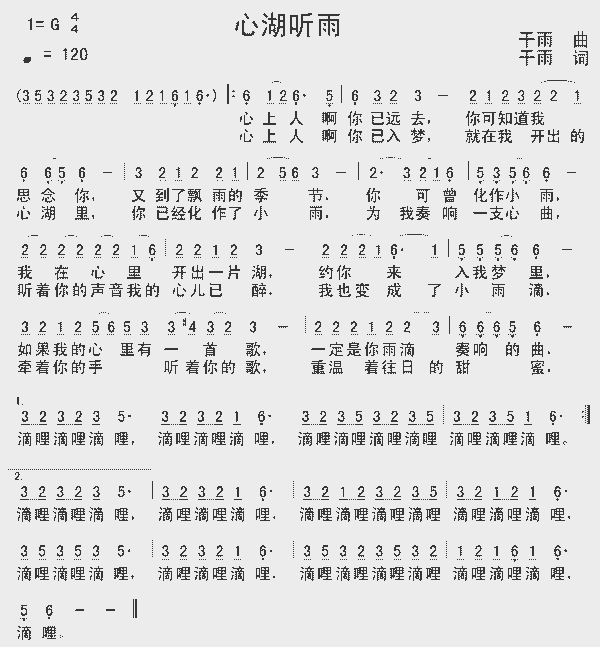 心湖听雨
1=G 4/4
♩ = 120
千雨 曲
千雨 词
(35323532 121616·) ‖: 6 126· 5 | 6 32 3 － 212322 1
心上人 啊你已远去， 你可知道我
心上人 啊你已入梦， 就在我 开出的
6 65 6 － | 3 212 21 | 2 56 3 － | 2· 3216 | 5356 6 －
思念你， 又到了飘 雨的季 节， 你 可曾 化作小 雨，
心湖里， 你已经化 作了小 雨， 为 我奏响 一支心曲，
22222216 | 2212 3 － 22216·1 | 5556 6 －
我 在 心 里 开出一片 湖， 约你 来 入我梦 里，
听着你的声音我的 心儿已 醉， 我也变 成 了 小 雨 滴，
32125653 3#432 3 － | 2221 22 3 | 6665 6 －
如果我的心 里有 一 首 歌， 一定是你雨滴 奏响 的 曲．
牵着你的手 听着你的歌， 重温 着往日 的甜 蜜．
1.
32323 5· 32321 6· 32323235 32351 6· :‖
滴哩滴哩滴 哩， 滴哩滴哩滴 哩， 滴哩滴哩滴哩滴哩滴哩滴哩滴 哩。
2.
32323 5· | 32321 6· | 32123235 | 32321 6·
滴哩滴哩滴 哩， 滴哩滴哩滴 哩， 滴哩滴哩滴哩滴哩滴哩滴哩滴 哩，
35353 5· | 32321 6· | 32323532 | 12161 6·
滴哩滴哩滴 哩， 滴哩滴哩滴 哩， 滴哩滴哩滴哩滴哩滴哩滴哩滴 哩，
5 6 － － ‖
滴 哩。